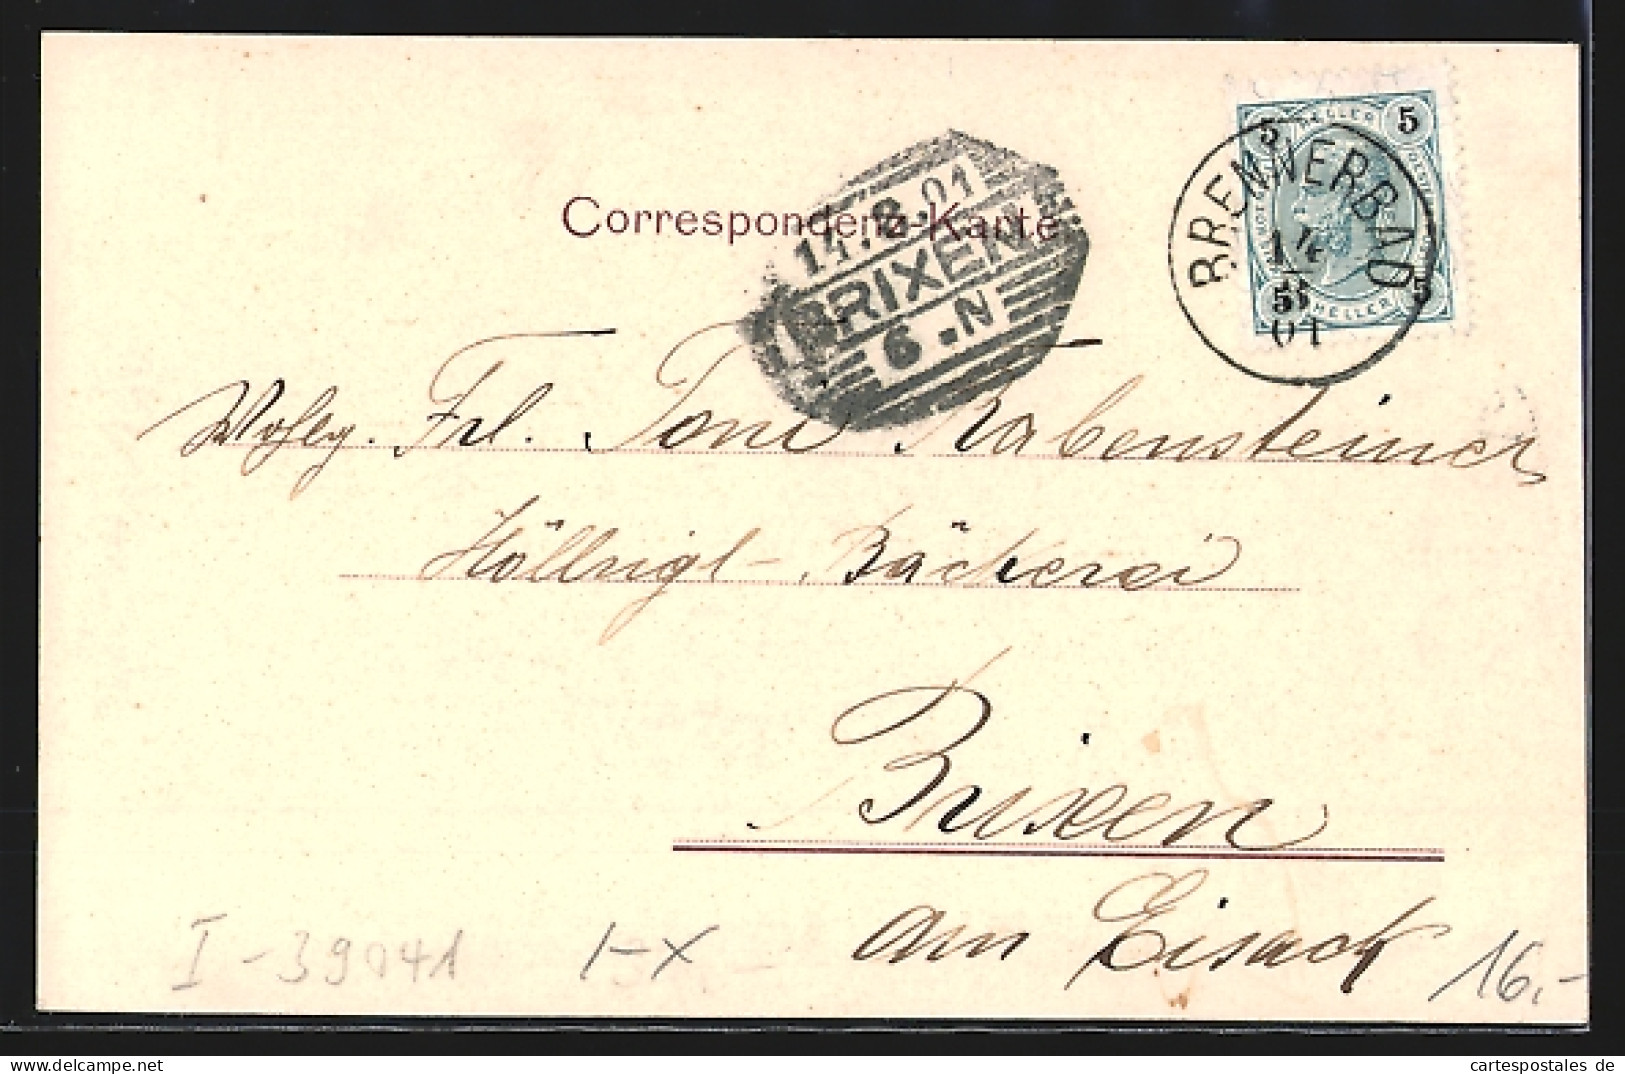 Correspondenz-Karte
14.8.01
BRIXEN
6.N
5 HELLER 5
5 HELLER 5
BRENNERBAD
14
01
Wohlg. Frl. Toni Rabensteiner
Bäckerei
Brixen
am Eisack
I-39041
1-X
16,-
cartespostales de